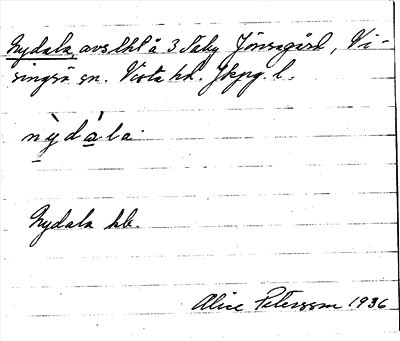 Nydala, avs. lht å 3 Täby Jönsagård, Vi-
singsö sn. Vista hd. Jkpg. l.
nỳdàla.
Nydala hb.
Alice Petersson 1936